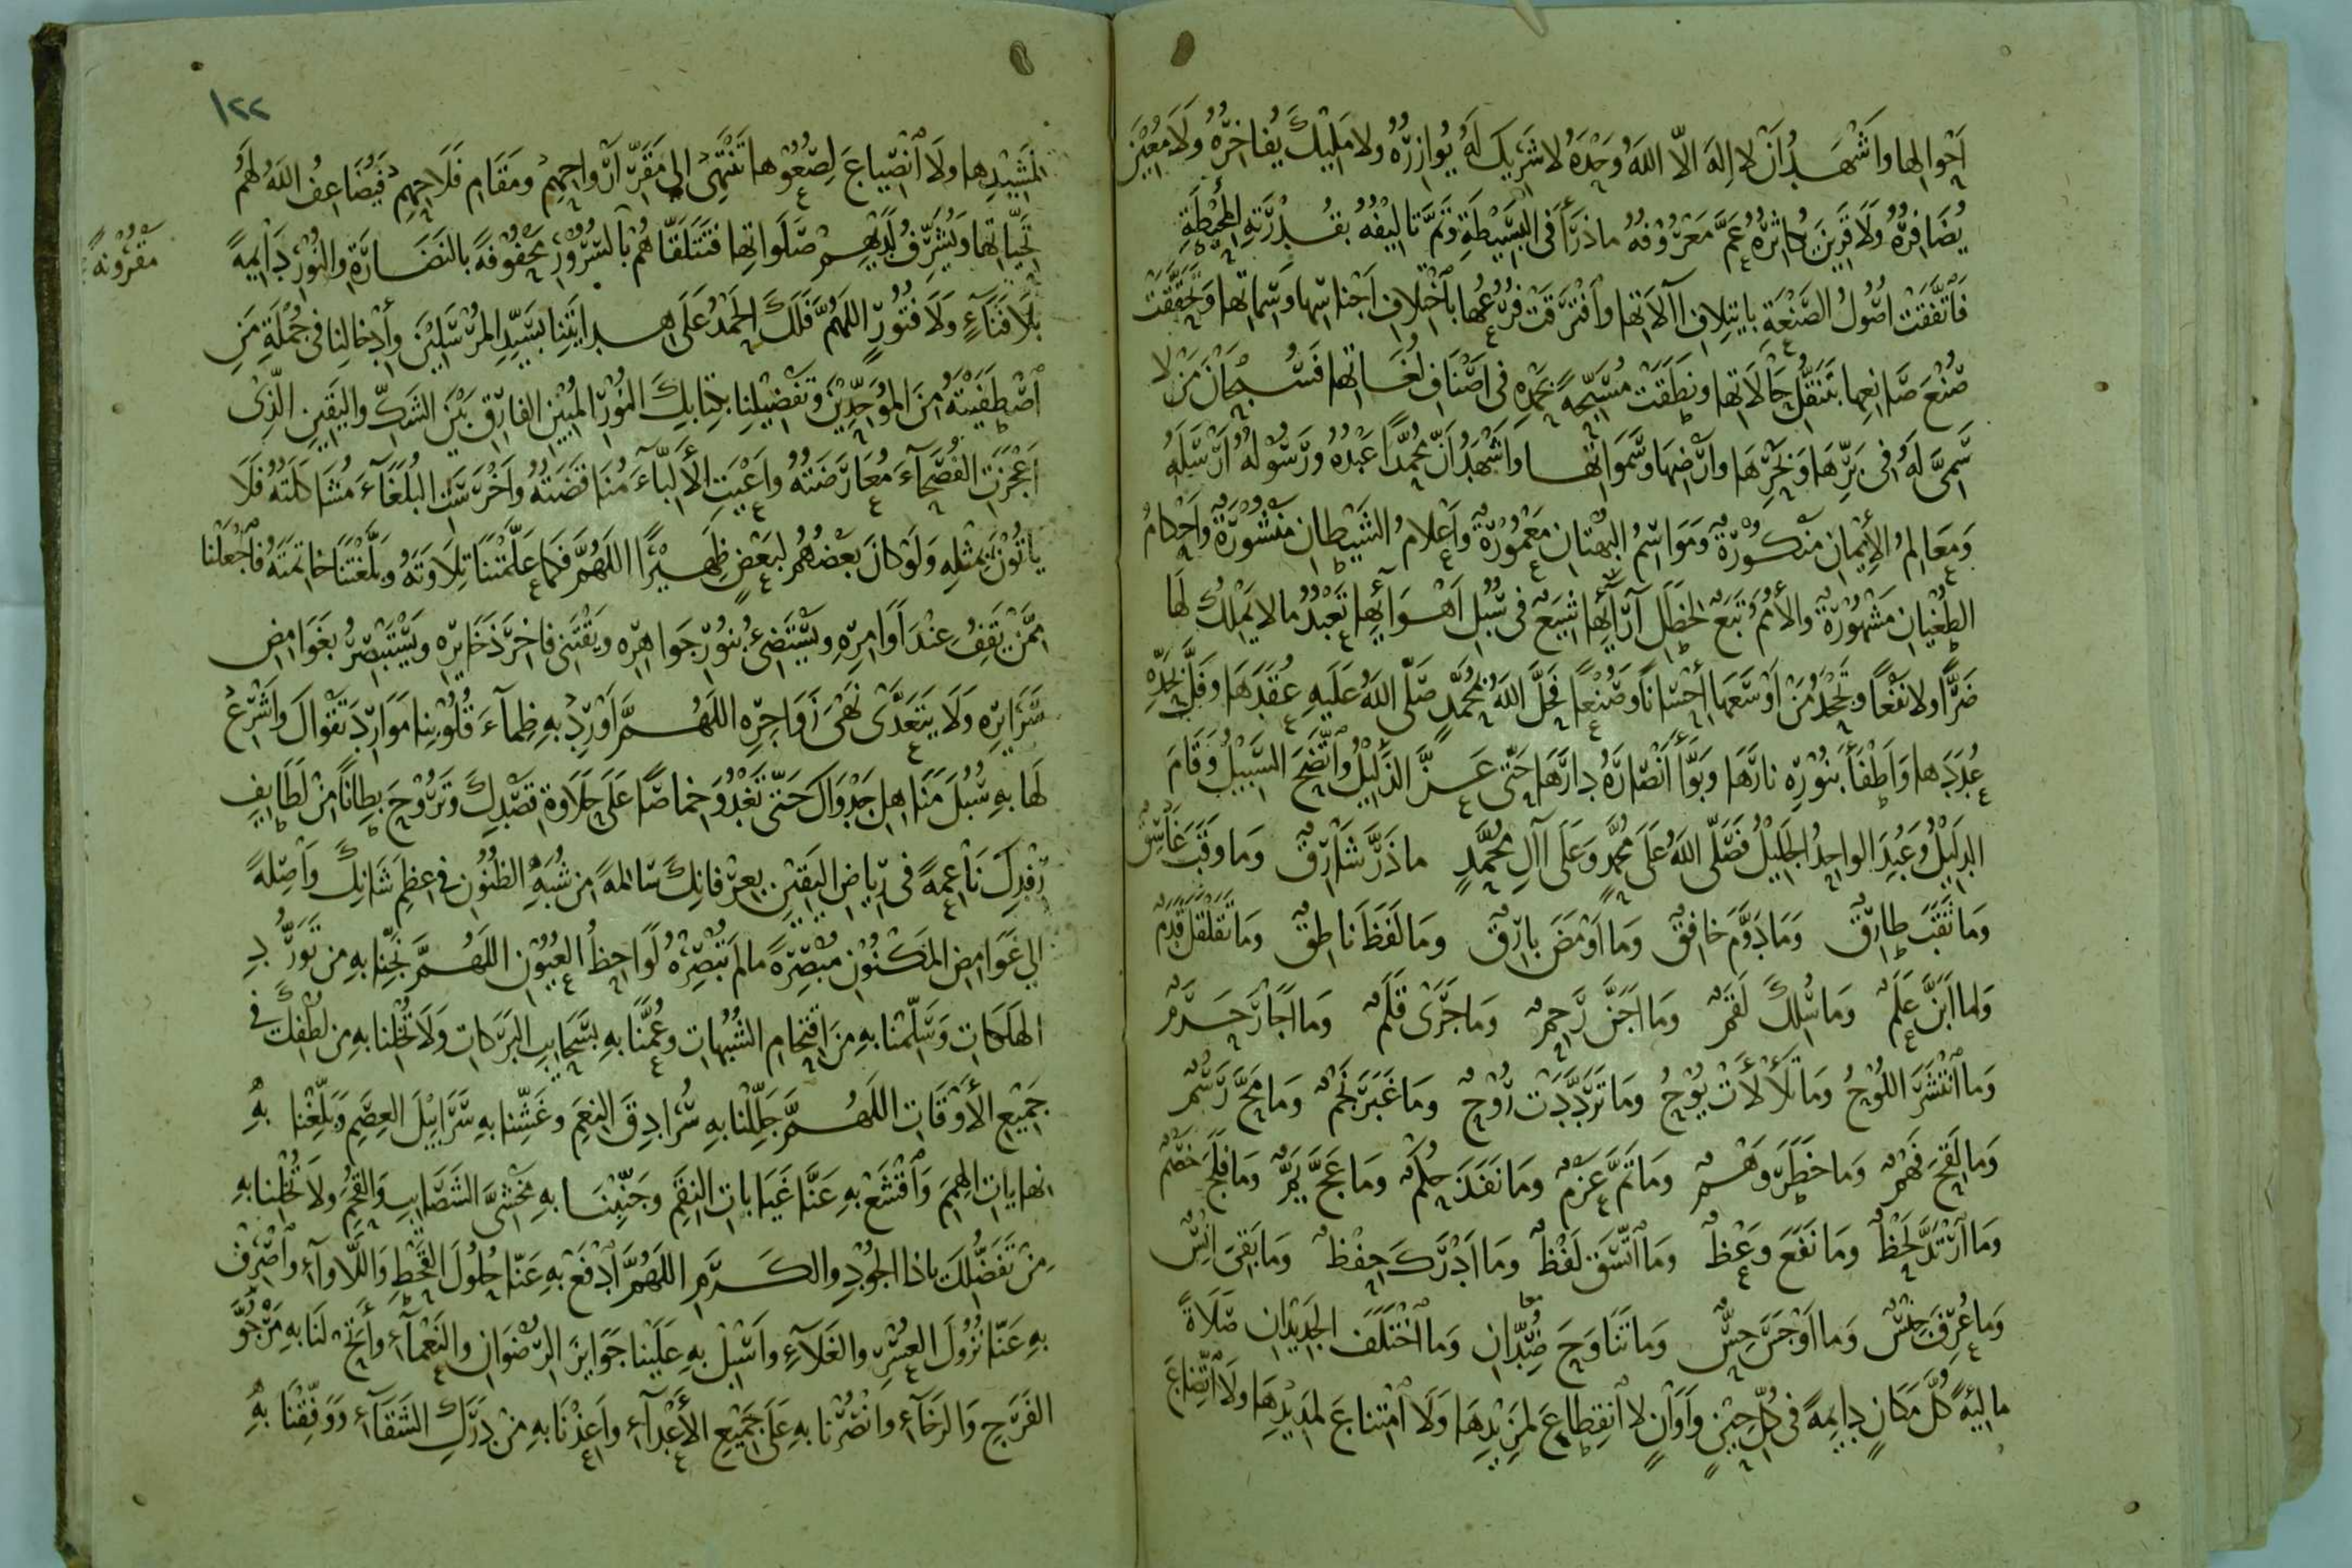 اَحْوَالِها وَاَشْهَدُ اَنْ لا اِلهَ اِلاّ اللهُ وَحْدَهُ لا شَرِيكَ لَهُ يُوازِرُهُ ولا مَلِيْكَ يُفاخِرُهُ وَلَا مُعِيْنَ
يُضَافِرُهُ وَلَا قَرِينَ يُكاثِرُهُ عَمَّ مَعْرُوْفُهُ ماذَرَأَ فِى البَسِيْطَةِ وَتَمَّ تَالِيْفُهُ بِقُدْرَتِهِ المُحِيْطَةِ
فَاتَّفَقَتْ اُصُولُ الصَّنْعَةِ بايتِلافِ اآلاتِها وَافْتَرَقَتْ فُرُوعُها باخْتِلافِ اَجْناسِها وَسِماتِها وَتَحَقَّقَتْ
صُنْعَ صَانِعِها بِتَنَقُّلِ حَالَاتِها ونَطَقَتْ مُسَبِّحَةً بِحَمْدِهِ فى اَصْنَافِ لُغَاتِها فَسُبْحَانَ مَنْ لا
سَمِىَّ لَهُ فى بَرِّهَا وَبَحْرِهَا وَاَرْضِهَا وَسَمَوَاتِها وَاَشْهَدُ اَنَّ مُحَمَّدًا عَبْدُهُ وَرَسُولُهُ اَرْسَلَهُ
وَمَعَالِمُ الاِيْمانِ مَنْكُوْرَةٌ وَمَوَاسِمُ البُهْتَانِ مَعْمُورَةٌ وَاَعْلامُ الشَيْطانِ مَنْشُوْرَةٌ وَاَحْكامُ
الطُغْيانِ مَشْهُوْرَةٌ والاُمَمُ تَبَعٌ لِخَطَلِ آرَآئِها شِيَعٌ فى سُبُلِ اَهْوَآئِها تَعْبُدُ مالا يَمْلِكُ لَها
ضَرًّا ولا نَفْعًا وَتَجْحَدُ مَنْ اَوْسَعَهَا اِحْسَانًا وَصُنْعًا فَحَلَّ اللهُ بِمُحَمَّدٍ صَلَّى اللهُ عَلَيهِ عُقَدَهَا وَفَلَّ بِحَدِّهِ
عُدَدَها وَاَطْفَأَ بِنُوْرِهِ نارَها وَبَوَّأَ اَنْصَارَهُ دارَها حَتّى عَزَّ الذَلِيْلُ وَاتَّضَحَ السَبِيْلُ وَقَامَ
الدَلِيْلُ وَعُبِدَ الواحِدُ الجَلِيْلُ فَصَلَّى اللهُ عَلَى مُحَمَّدٍ وَعَلَى اآلِ مُحَمَّدٍ ماذَرَّ شَارِقٌ وَمَا وَقَبَ غَاسِقٌ
وَمَا ثَقَبَ طارِقٌ وَمَادَوَّمَ خَافِقٌ وَمَا اَوْمَضَ بارِقٌ وَمَا لَفَظَ نَاطِقٌ وَمَا تَقَلْقَلَ قَدَمٌ
عَلَمٌ وَمَا سُلِكَ لَقَمٌ وَمَا اَجَنَّ رَحِمٌ وَمَا جَرَى قَلَمٌ وَمَا اَجَارَ حَرَمٌ
وَمَا انْتَشَرَ اللُوْحُ وَمَا تَلَأْلَأَتْ يُوْحُ وَمَا تَرَدَّدَتْ رُوْحٌ وَمَا غَبَرَ نَجْمٌ وَمَا مَحَّ رَسْمٌ
وَمَا لَقِحَ فَهْمٌ وَمَا خَطَرَ وَهْمٌ وَمَا تَمَّ عَزْمٌ وَمَا نَفَذَ حُكْمٌ وَمَا عَجَّ يَمٌّ وَمَا فَلَجَ خَصْمٌ
وَمَا ارْتَدَّ لَحْظٌ وَمَا نَفَعَ وَعْظٌ وَمَا اتَّسَقَ لَفْظٌ وَمَا اَدْرَكَ حِفْظٌ وَمَا بَقِىَ اِنْسٌ
وَمَا عُرِفَ جِنْسٌ وَمَا اَوْجَسَ حِسٌّ وَمَا تَنَاوَحَ ضِدّانِ معًا وَمَا اخْتَلَفَ الجَدِيْدَانِ صَلَاةً
مالِيَةً كُلَّ مَكَانٍ دايِمَةً فى كُلِّ حِيْنٍ وَاَوَانٍ لا انْقِطاعَ لِمَزِيْدِهَا وَلَا امْتِناعَ لِمَدِيْدِهَا ولَا اتِّضَاعَ
١٢٢
لِمَشِيْدِها ولَا انْصِياعَ لِصُعُوْدِها تَنْتَهِى الى مَقَرِّ اَرْواحِهِمْ ومَقَامِ فَلَاحِهِمْ فَيُضَاعِفُ اللهُ لَهُمْ
تَحِيّاتِها وَيُشَرِّفُ لَدَيْهِمْ صَلَوَاتِها فَتَتَلَقّاهُمْ بِالسُّرُوْرِ مَحْفُوْفَةً بالنَضَارَةِ والنُوْرِ دَايِمَةً
مَقْرُوْنَةً
بِلَا فَنَآءٍ وَلَا فُتُوْرٍ اللهُمَّ فَلَكَ الحَمْدُ عَلَى هِدايَتِنا بِسَيِّدِ المُرْسَلِيْنَ وأَدْخالِنا فى جُمْلَةِ مَنِ
اصْطَفَيْتَهُ مِنَ المُوَحِّدِيْنَ وَتَفْضِيْلِنا بِكِتَابِكَ النُوْرِ المُبِيْنِ الفارِقِ بَيْنَ الشَكِّ واليَقِيْنِ الَّذِىْ
اَعْجَزَتِ الفُصَحَآءَ مُعَارَضَتُهُ وَاَعْيَتِ الأَلِبّآءَ مُنَاقَضَتُهُ وَاَخْرَسَتِ البُلَغَآءَ مُشَاكَلَتُهُ فَلَا
يَأتُوْنَ بِمِثْلِهِ وَلَوْ كَانَ بَعْضُهُمْ لِبَعْضٍ ظَهِيْرًا اللهُمَّ فَكَمَا عَلَّمْتَنَا تِلَاوَتَهُ وَبَلَّغْتَنَا خَاتِمَتَهُ فَاجْعَلْنا
مِمَّنْ يَقِفُ عِنْدَ اَوَامِرِهِ ويَسْتَضِىءُ بِنُوْرِ جَواهِرِه ويَقْتَنِى فاخِرَ ذَخَايِرِه وَيَسْتَبْصِرُ بِغَوَامِضِ
سَرَايِرِهِ وَلَا يَتَعَدَّى نَهْىَ زَوَاجِرِه اللهُمَّ اَوْرِدْ بِهِ ظِمآءَ قُلُوْبِنا مَوَارِدَ تَقْوَاكَ واَشْرِعْ
لَها بِهِ سُبُلَ مَنَاهِلِ جَدْوَاكَ حَتّى تَغْدُوَ خِماصًا عَلَى حَلَاوَةِ قَصْدِكَ وَتَرُوْحَ بِطِانًا مِنْ لَطَايِفِ
رِفْدِكَ نَاعِمَةً فى رِيَاضِ اليَقِيْنِ بِعِرْفانِكَ سَالِمَةً مِن شُبَهِ الظُنُوْنِ فى عِظَمِ شَانِكَ وَاصِلَةً
الى غَوَامِضِ المَكْنُوْنِ مُبْصِرَةً مالَم تُبْصِرْهُ لَوَاحِظُ العُيُوْنِ اللهُمَّ نَجِّنا بِهِ مِن تَوَرُّدِ
الهَلَكاتِ وَسَلِّمْنا بِهِ مِنَ اقْتِحَامِ الشُبُهاتِ وعُمَّنا بِهِ بِسَحَايِبِ البَرَكاتِ وَلَا تُخْلِنا بِهِ مِن لُطْفِكَ فى
جَمِيْعِ الأَوْقَاتِ اللهُمَّ جَلِّلْنا بِهِ سُرَادِقَ النِعَمِ وَغَشِّنا بِهِ سَرَابِيْلَ العِصَمِ وَبَلِّغْنا بِهِ
نِهَاياتِ الهِمَمِ وَاقْشَعْ بِهِ عَنَّا غَيَاباتِ النِقَمِ وَجَنِّبْنَا بِهِ مَخْشِىَّ الشَصَايِبِ وَالقُحَمِ ولَا تُخْلِنا بِهِ
مِنْ تَفَضُّلِكَ ياذا الجُوْدِ والكَرَمِ اللهُمَّ ادْفَعْ بِهِ عَنّا حُلُولَ القَحْطِ وَاللَّأْوآءِ وَاصْرِفْ
بِهِ عَنّا نُزُولَ العُسْرِ والغَلآءِ وَاَسْبِلْ بِهِ عَلَيْنا جَوَايِزَ الرِضْوَانِ والنَعْمآءِ وأَتِحْ لَنَا بِهِ مَرْجُوَّ
الفَرَجِ وَالرَخَآءِ وانْصُرْنا بِهِ عَلَى جَمِيْعِ الأَعْدآءِ وَاَعِذْنَا بِهِ مِنْ دَرَكِ الشَقَآءِ وَوَفِّقْنَا بِهِ